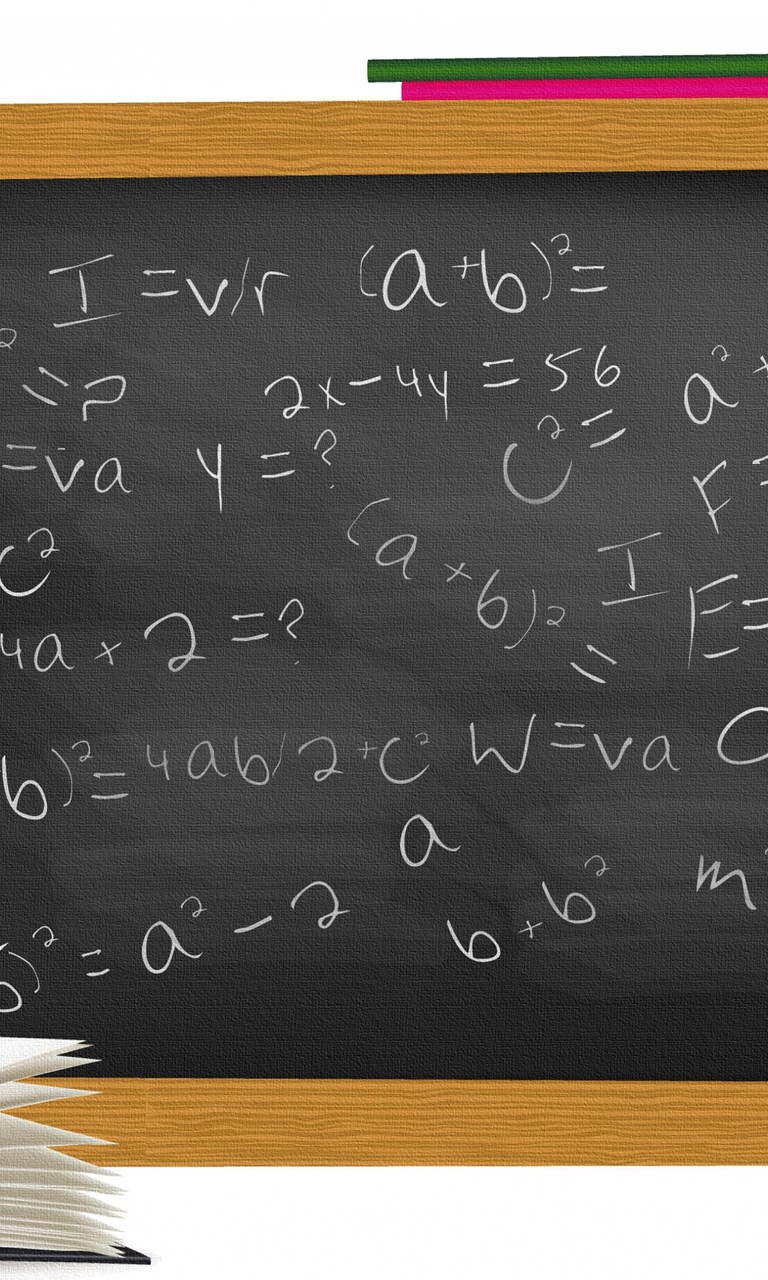 I = v/r (a+b)² =
² = ?
2x-4y = 56
a² +
= va y = ? c² = F =
c² (a × 6)² = I E =
4a × 2 = ?
b)² = 4ab/2+c² W = va
a
m²
b)² = a² - 2 b + b²